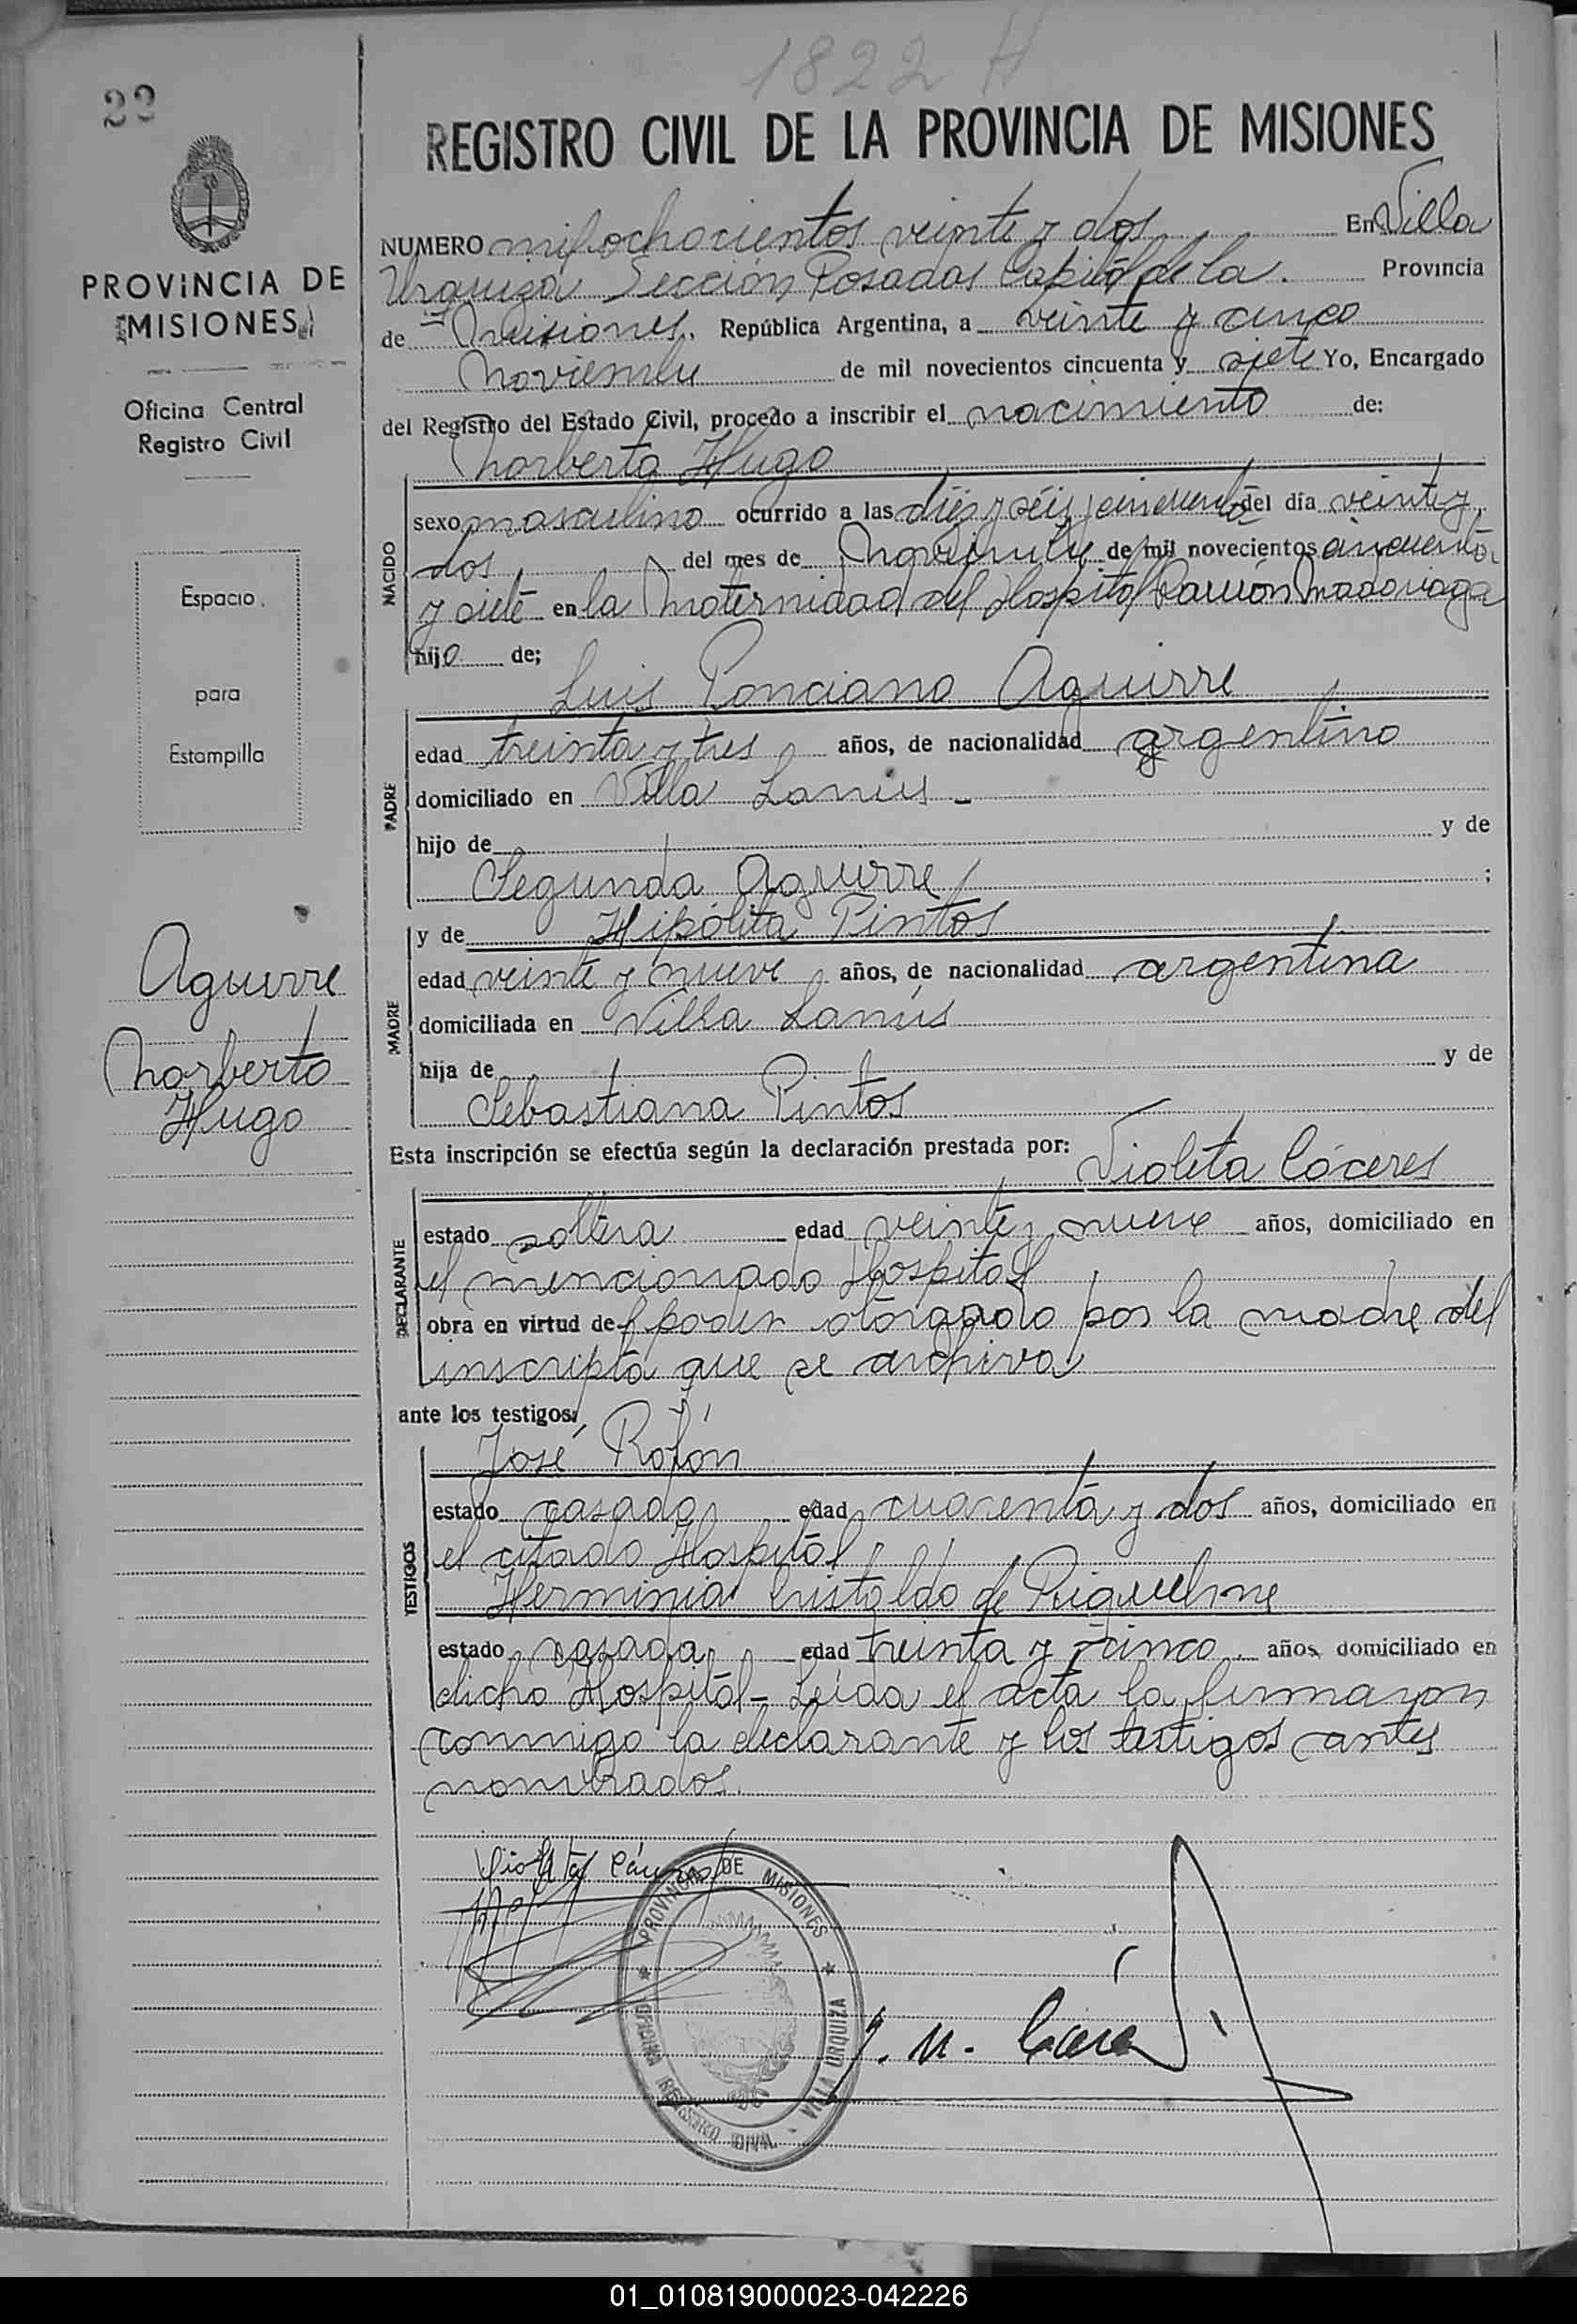 1822 H
22
REGISTRO CIVIL DE LA PROVINCIA DE MISIONES
PROVINCIA DE
MISIONES
Oficina Central
Registro Civil
Espacio
para
Estampilla
Aguirre
Norberto
Hugo
NUMERO mil ochocientos veinte y dos En Villa
Urquiza Sección Posadas Capital de la Provincia
de Misiones. República Argentina, a veinte y cinco
Noviembre de mil novecientos cincuenta y siete Yo, Encargado
del Registro del Estado Civil, procedo a inscribir el nacimiento de:
Norberto Hugo
NACIDO
sexo masculino ocurrido a las diez y séis y cincuenta del día veinte y
dos del mes de Noviembre de mil novecientos cincuenta
y siete en la Maternidad del Hospital Ramón Madariaga
hijo de;
Luis Ponciano Aguirre
PADRE
edad treinta y tres años, de nacionalidad argentino
domiciliado en Villa Lanús -
hijo de y de
Segunda Aguirre ;
y de Hipólita Pintos
MADRE
edad veinte y nueve años, de nacionalidad argentina
domiciliada en Villa Lanús
hija de y de
Sebastiana Pintos
Esta inscripción se efectúa según la declaración prestada por: Violeta Cáceres
DECLARANTE
estado soltera edad veinte y nueve años, domiciliado en
el mencionado Hospital
obra en virtud de poder otorgado por la madre del
inscripto que se archiva
ante los testigos:
José Rolón
TESTIGOS
estado casado edad cuarenta y dos años, domiciliado en
el citado Hospital
Herminia Cristaldo de Riquelme
estado casada edad treinta y cinco años, domiciliado en
dicho Hospital - Leída el acta la firmaron
conmigo la declarante y los testigos antes
nombrados.
Violeta Cáceres
PROVINCIA DE MISIONES
OFICINA REGISTRO CIVIL - VILLA URQUIZA
01_010819000023-042226